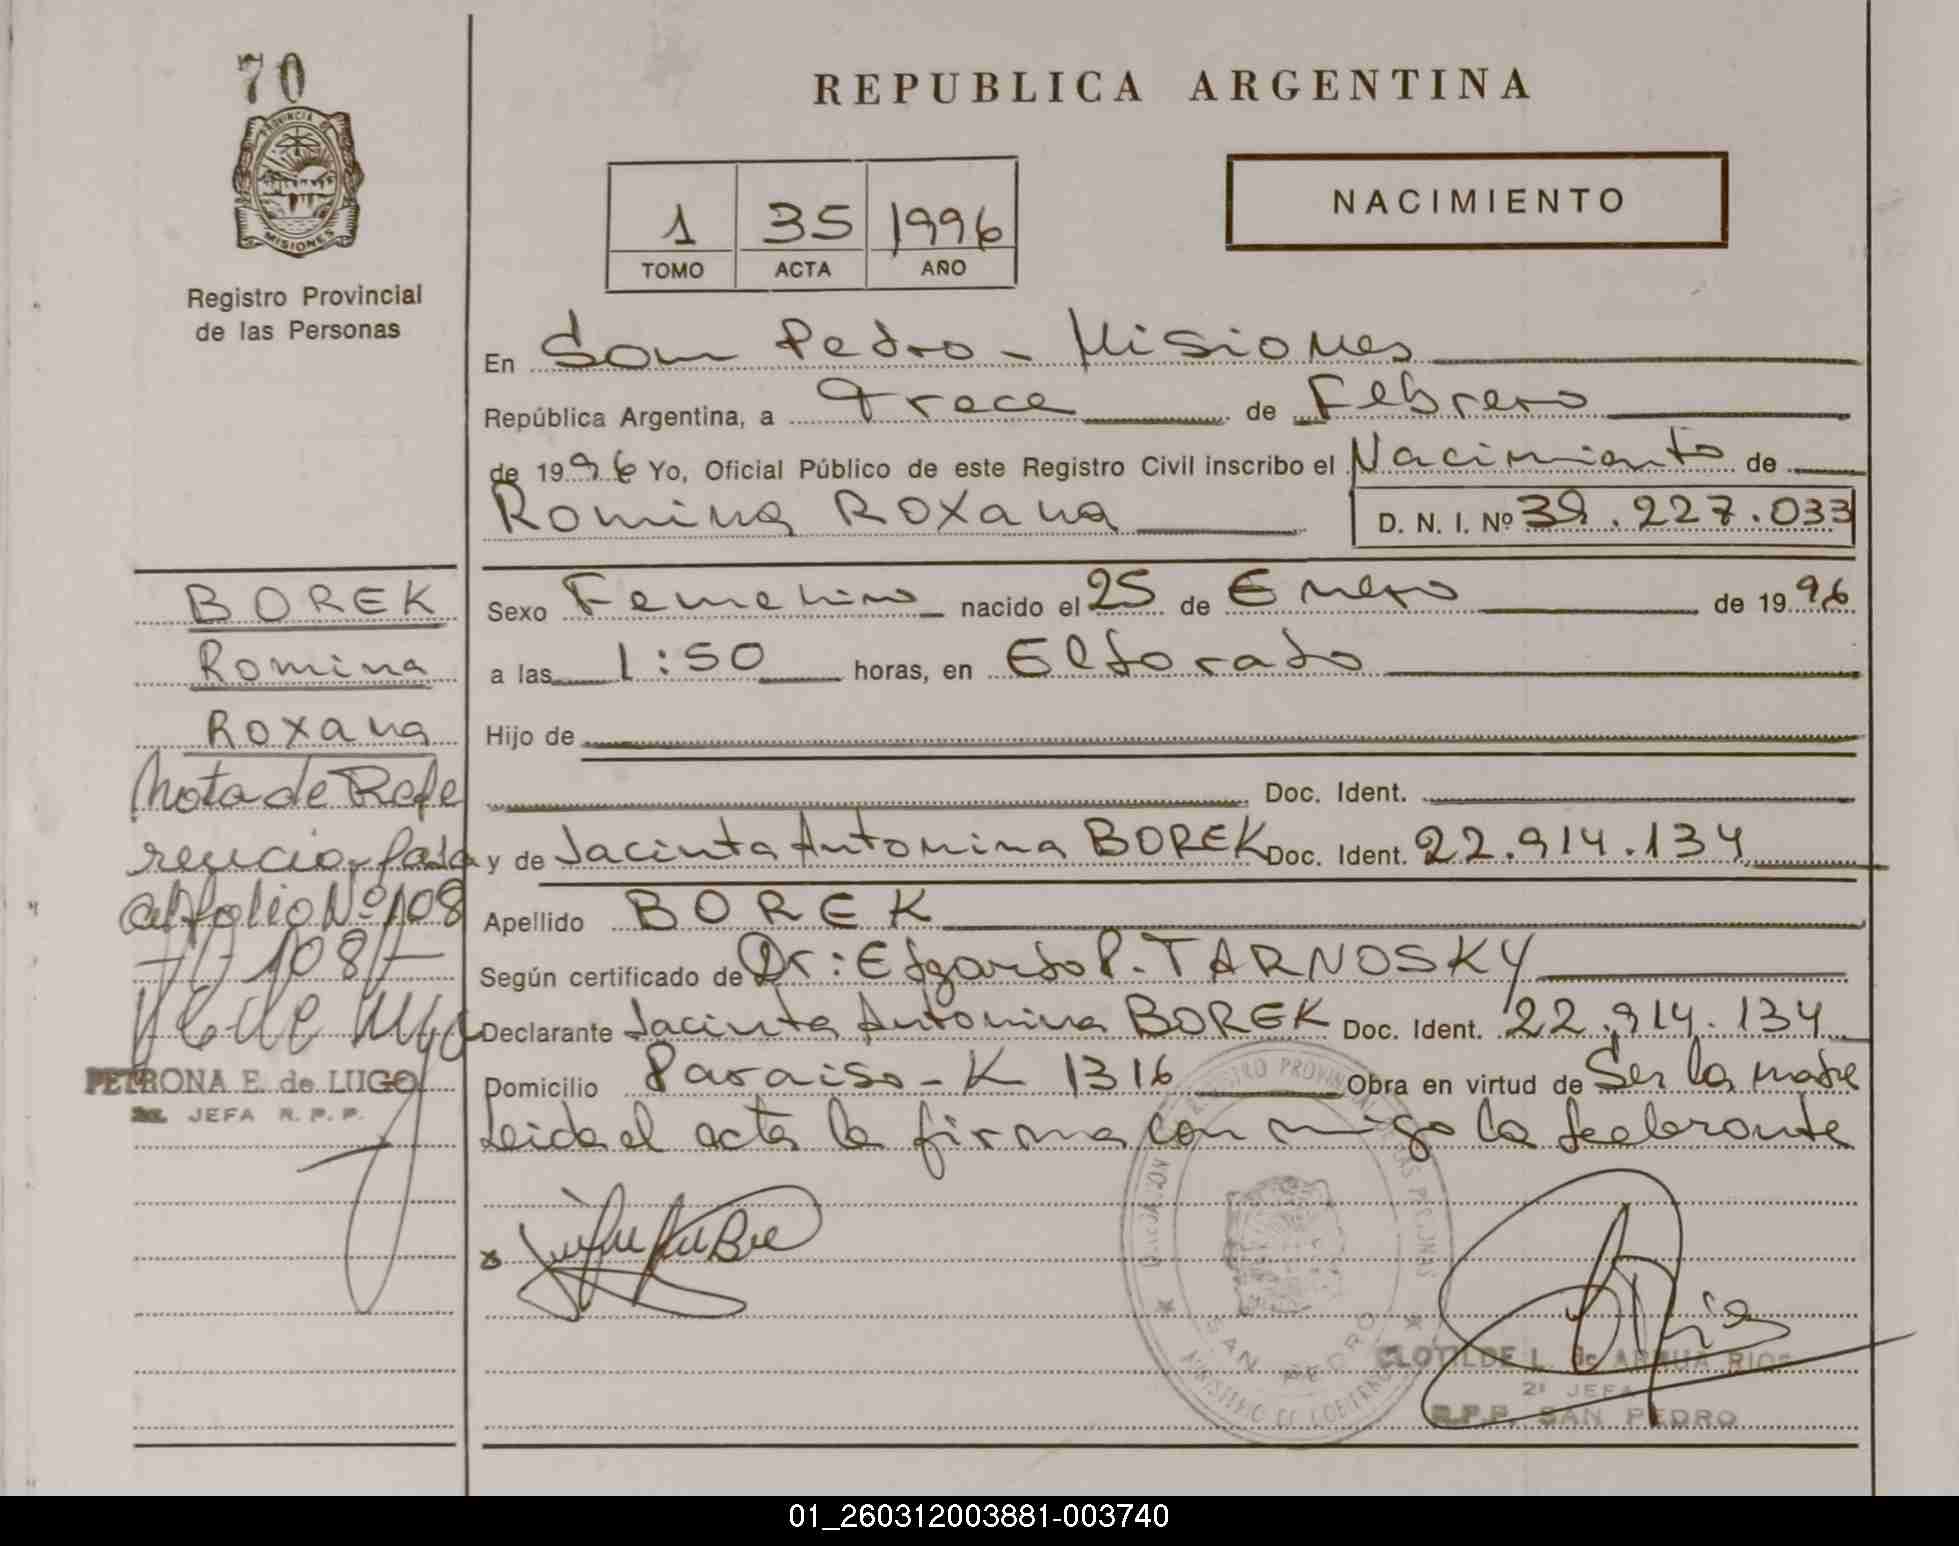 70
PROVINCIA DE
MISIONES
Registro Provincial
de las Personas
REPUBLICA ARGENTINA
1 35 1996
TOMO ACTA AÑO
NACIMIENTO
En San Pedro - Misiones
República Argentina, a Trece de Febrero
de 1996 Yo, Oficial Público de este Registro Civil inscribo el Nacimiento de
Romina Roxana D. N. I. Nº 39.227.033
BOREK
Romina
Roxana
Nota de Refe
rencia, pasa
al folio Nº 108
-//- 108//-
PETRONA E. de LUGO
JEFA R. P. P.
Sexo Femenino nacido el 25 de Enero de 1996
a las 1:50 horas, en Eldorado
Hijo de
Doc. Ident.
y de Jacinta Antonina BOREK Doc. Ident. 22.914.134
Apellido BOREK
Según certificado de Dr: Edgardo P. TARNOSKY
Declarante Jacinta Antonina BOREK Doc. Ident. 22.914.134
Domicilio Paraiso - K 1316 Obra en virtud de Ser la madre
Leida el acta la firma con migo la declarante
SAN PEDRO
MINISTERIO DE GOBIERNO
CLOTILDE L. de ARRUA RIOS
2ª JEFA
R.P.P. SAN PEDRO
01_260312003881-003740